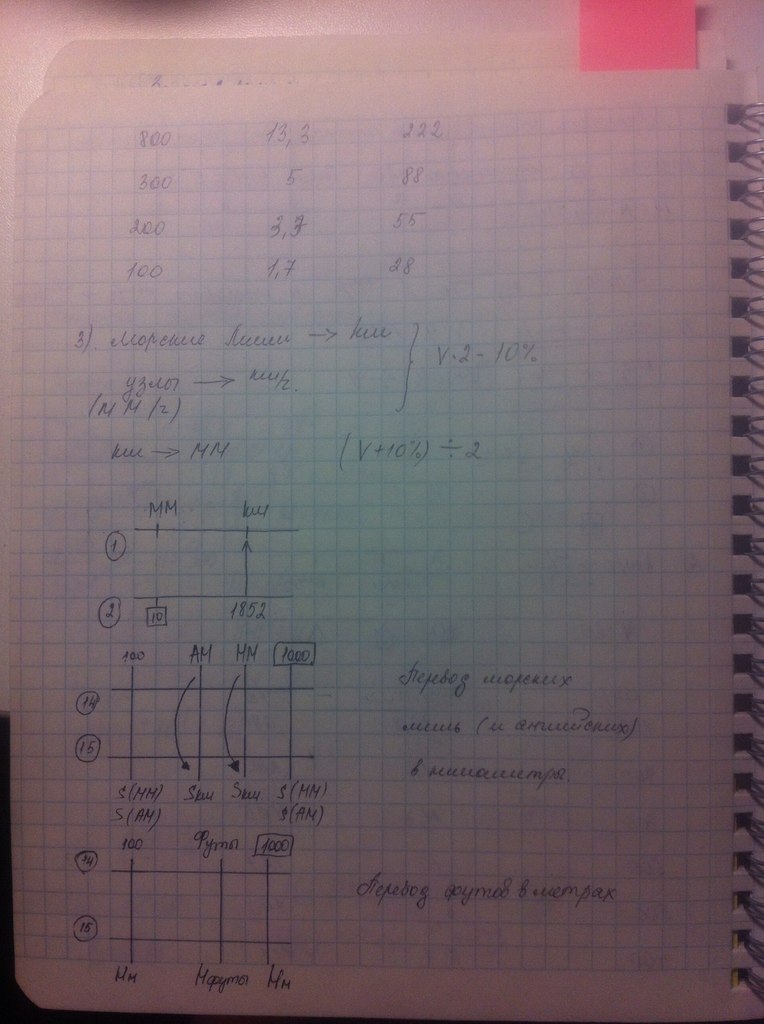 800 13,3 222
300 5 88
200 3,3 55
100 1,7 28
3) Морские Мили → км } V·2 - 10%
узлы → км/ч.
(ММ/ч)
км → ММ (V+10%) ÷ 2
ММ км
1
2 10 1852
100 АМ ММ 1000
14
15
S(ММ) Sкм Sкм S(ММ)
S(АМ) S(АМ)
Перевод морских
миль (и английских)
в километры.
100 Футы 1000
14
15
Перевод футов в метрах
Нм Нфуты Нм